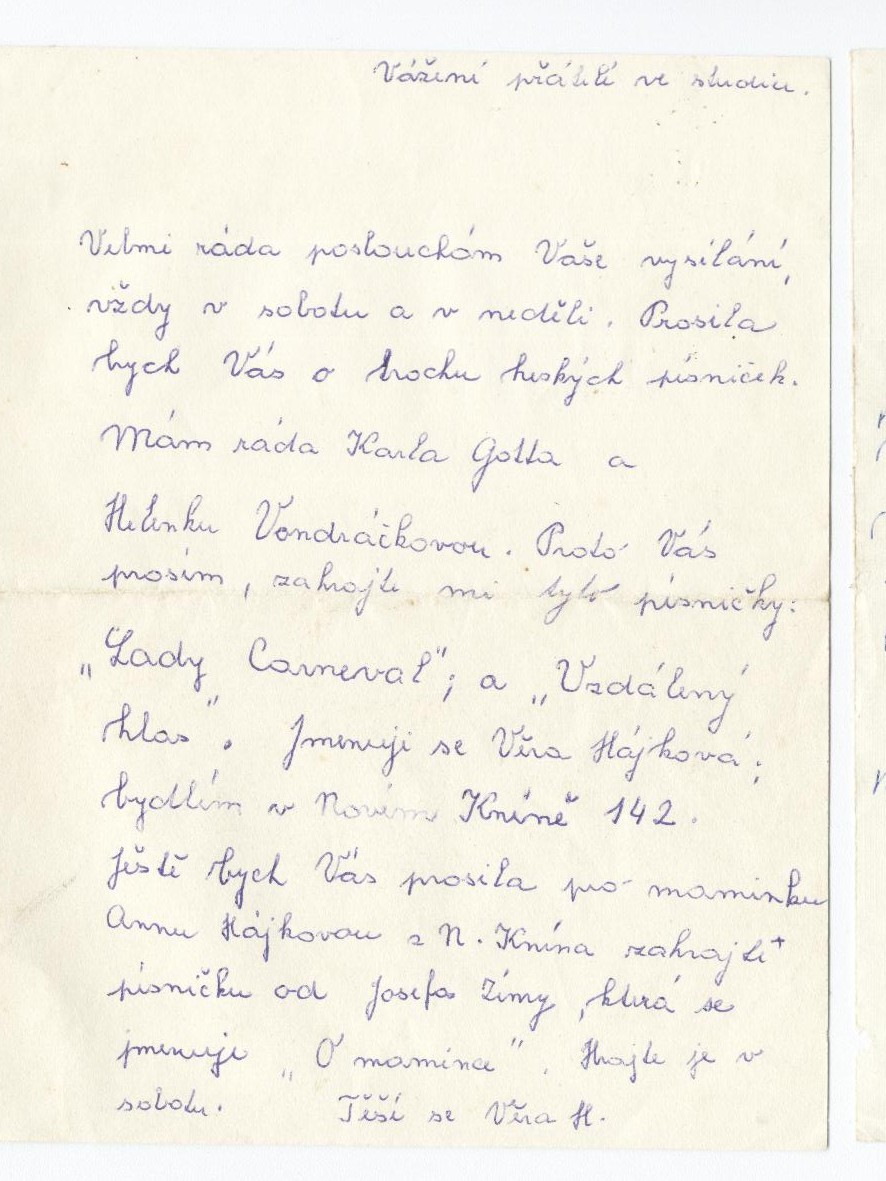 Vážení přátelé ve studiu.
Velmi ráda poslouchám Vaše vysílání,
vždy v sobotu a v neděli. Prosila
bych Vás o trochu heských písniček.
Mám ráda Karla Gotta a
Helenku Vondráčkovou. Proto Vás
prosím, zahrajte mi tyto písničky:
„Lady Carneval"; a „Vzdálený
hlas". Jmenuji se Věra Hájková;
bydlím v Novém Kníně 142.
Ještě bych Vás prosila pro maminku
Annu Hájkovou z N. Knína zahrajte+
písničku od Josefa Zímy, která se
jmenuje „O mamince". Hrajte je v
sobotu. Těší se Věra H.